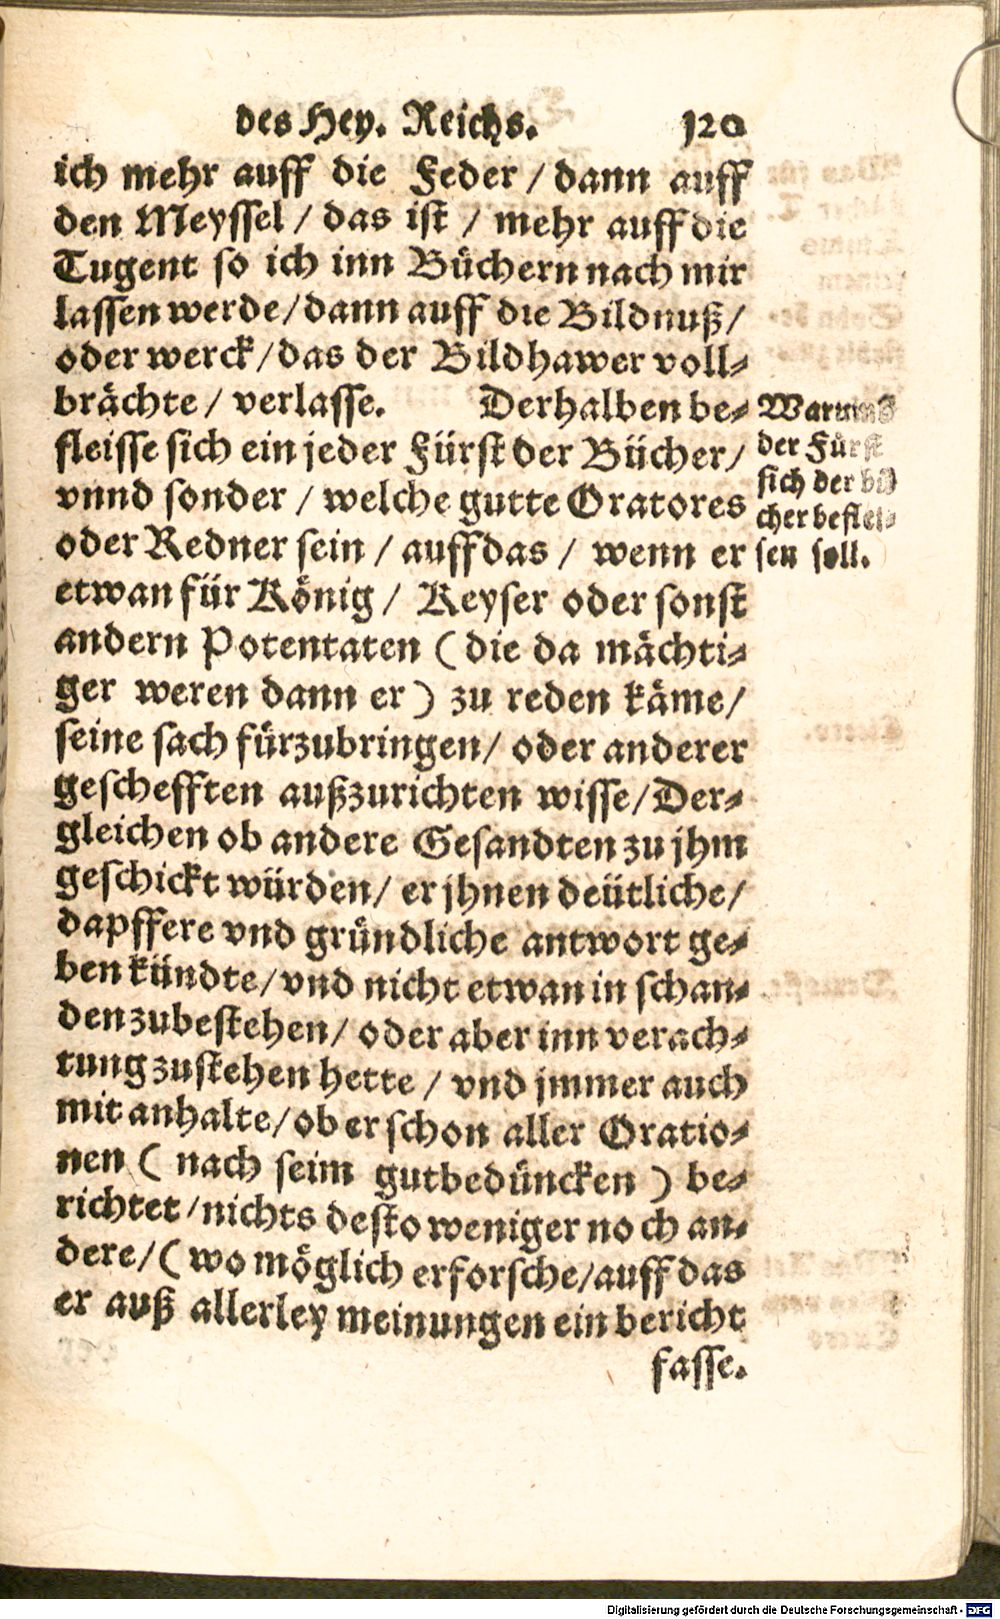 des Hey. Reichs. 120
ich mehr auff die Feder / dann auff
den Meyssel / das ist / mehr auff die
Tugent so ich inn Büchern nach mir
lassen werde / dann auff die Bildnuß /
oder werck / das der Bildhawer voll⸗
brächte / verlasse. Derhalben be⸗
fleisse sich ein jeder Fürst der Bücher /
vnnd sonder / welche gutte Oratores
oder Redner sein / auff das / wenn er
etwan für König / Keyser oder sonst
andern Potentaten ( die da mächti⸗
ger weren dann er ) zu reden käme /
seine sach fürzubringen / oder anderer
geschefften außzurichten wisse / Der⸗
gleichen ob andere Gesandten zu jhm
geschickt würden / er jhnen deütliche /
dapffere vnd gründliche antwort ge⸗
ben kündte / vnd nicht etwan in schan⸗
den zubestehen / oder aber inn verach⸗
tung zustehen hette / vnd jmmer auch
mit anhalte / ob er schon aller Oratio⸗
nen ( nach seim gutbedüncken ) be⸗
richtet / nichts desto weniger noch an⸗
dere / ( wo möglich erforsche / auff das
er auß allerley meinungen ein bericht
fasse.
Warumb
der Fürst
sich der bü
cher beflei⸗
sen soll.
Digitalisierung gefördert durch die Deutsche Forschungsgemeinschaft - DFG